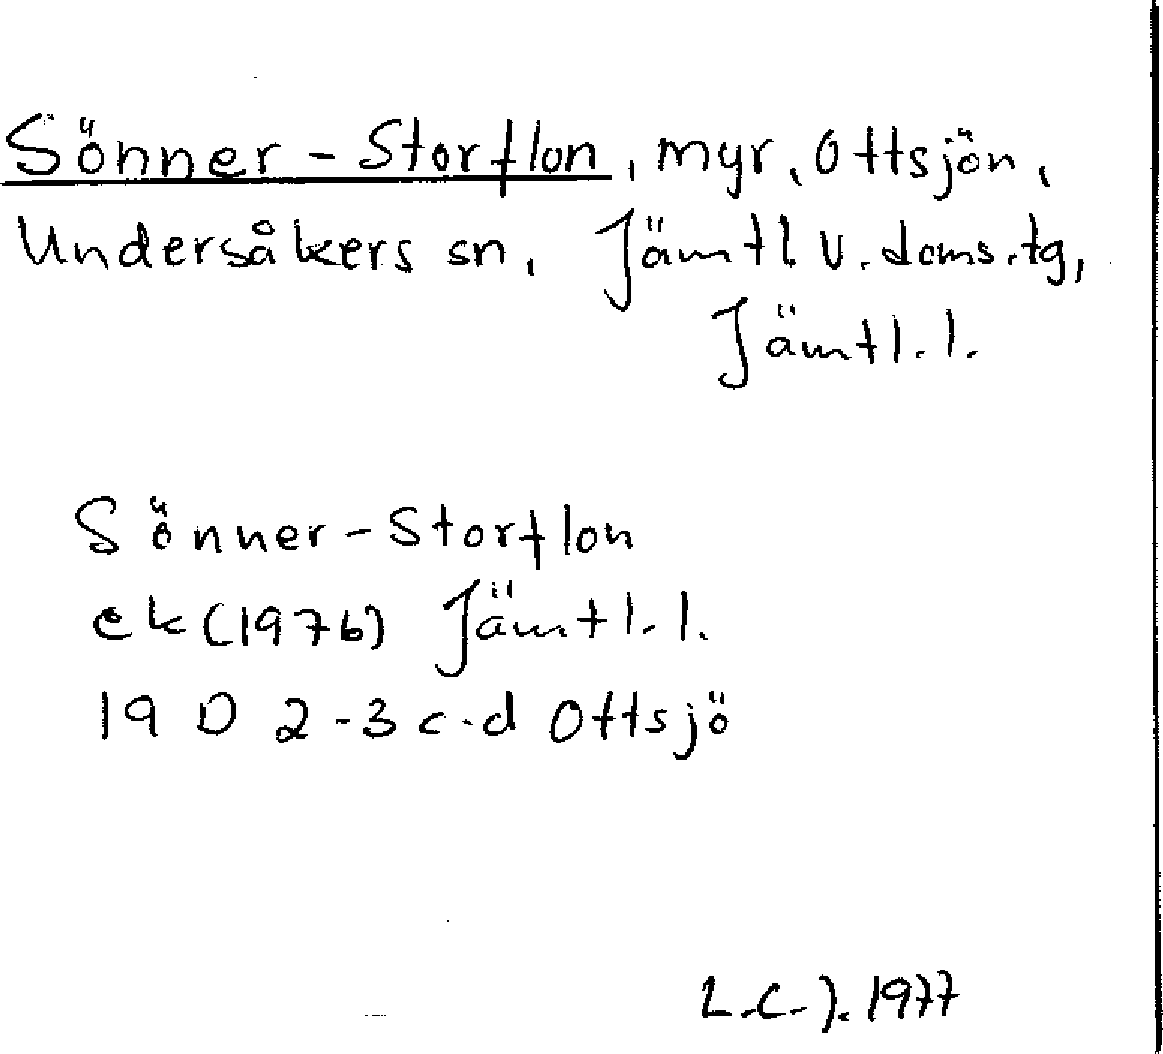 Sönner-Storflon, myr, Ottsjön,
Undersåkers sn, Jämtl v. doms.tg,
Jämtl. l.
Sönner-Storflon
ek (1976) Jämtl. l.
19 D 2-3 c-d Ottsjö
L.C.J. 1977